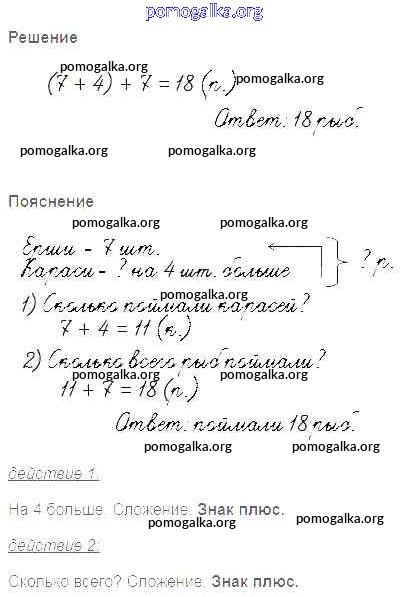 pomogalka.org
Решение
pomogalka.org
(7 + 4) + 7 = 18 (р.) pomogalka.org
Ответ: 18 рыб.
pomogalka.org pomogalka.org
Пояснение
pomogalka.org pomogalka.org
Ерши - 7 шт.
Караси - ? на 4 шт. больше
? р.
pomogalka.org
1) Сколько поймали карасей?
7 + 4 = 11 (к.)
2) Сколько всего рыб поймали?
pomogalka.org pomogalka.org
11 + 7 = 18 (р.)
Ответ: поймали 18 рыб.
pomogalka.org pomogalka.org
действие 1:
На 4 больше. Сложение. Знак плюс.
pomogalka.org pomogalka.org
действие 2:
Сколько всего? Сложение. Знак плюс.